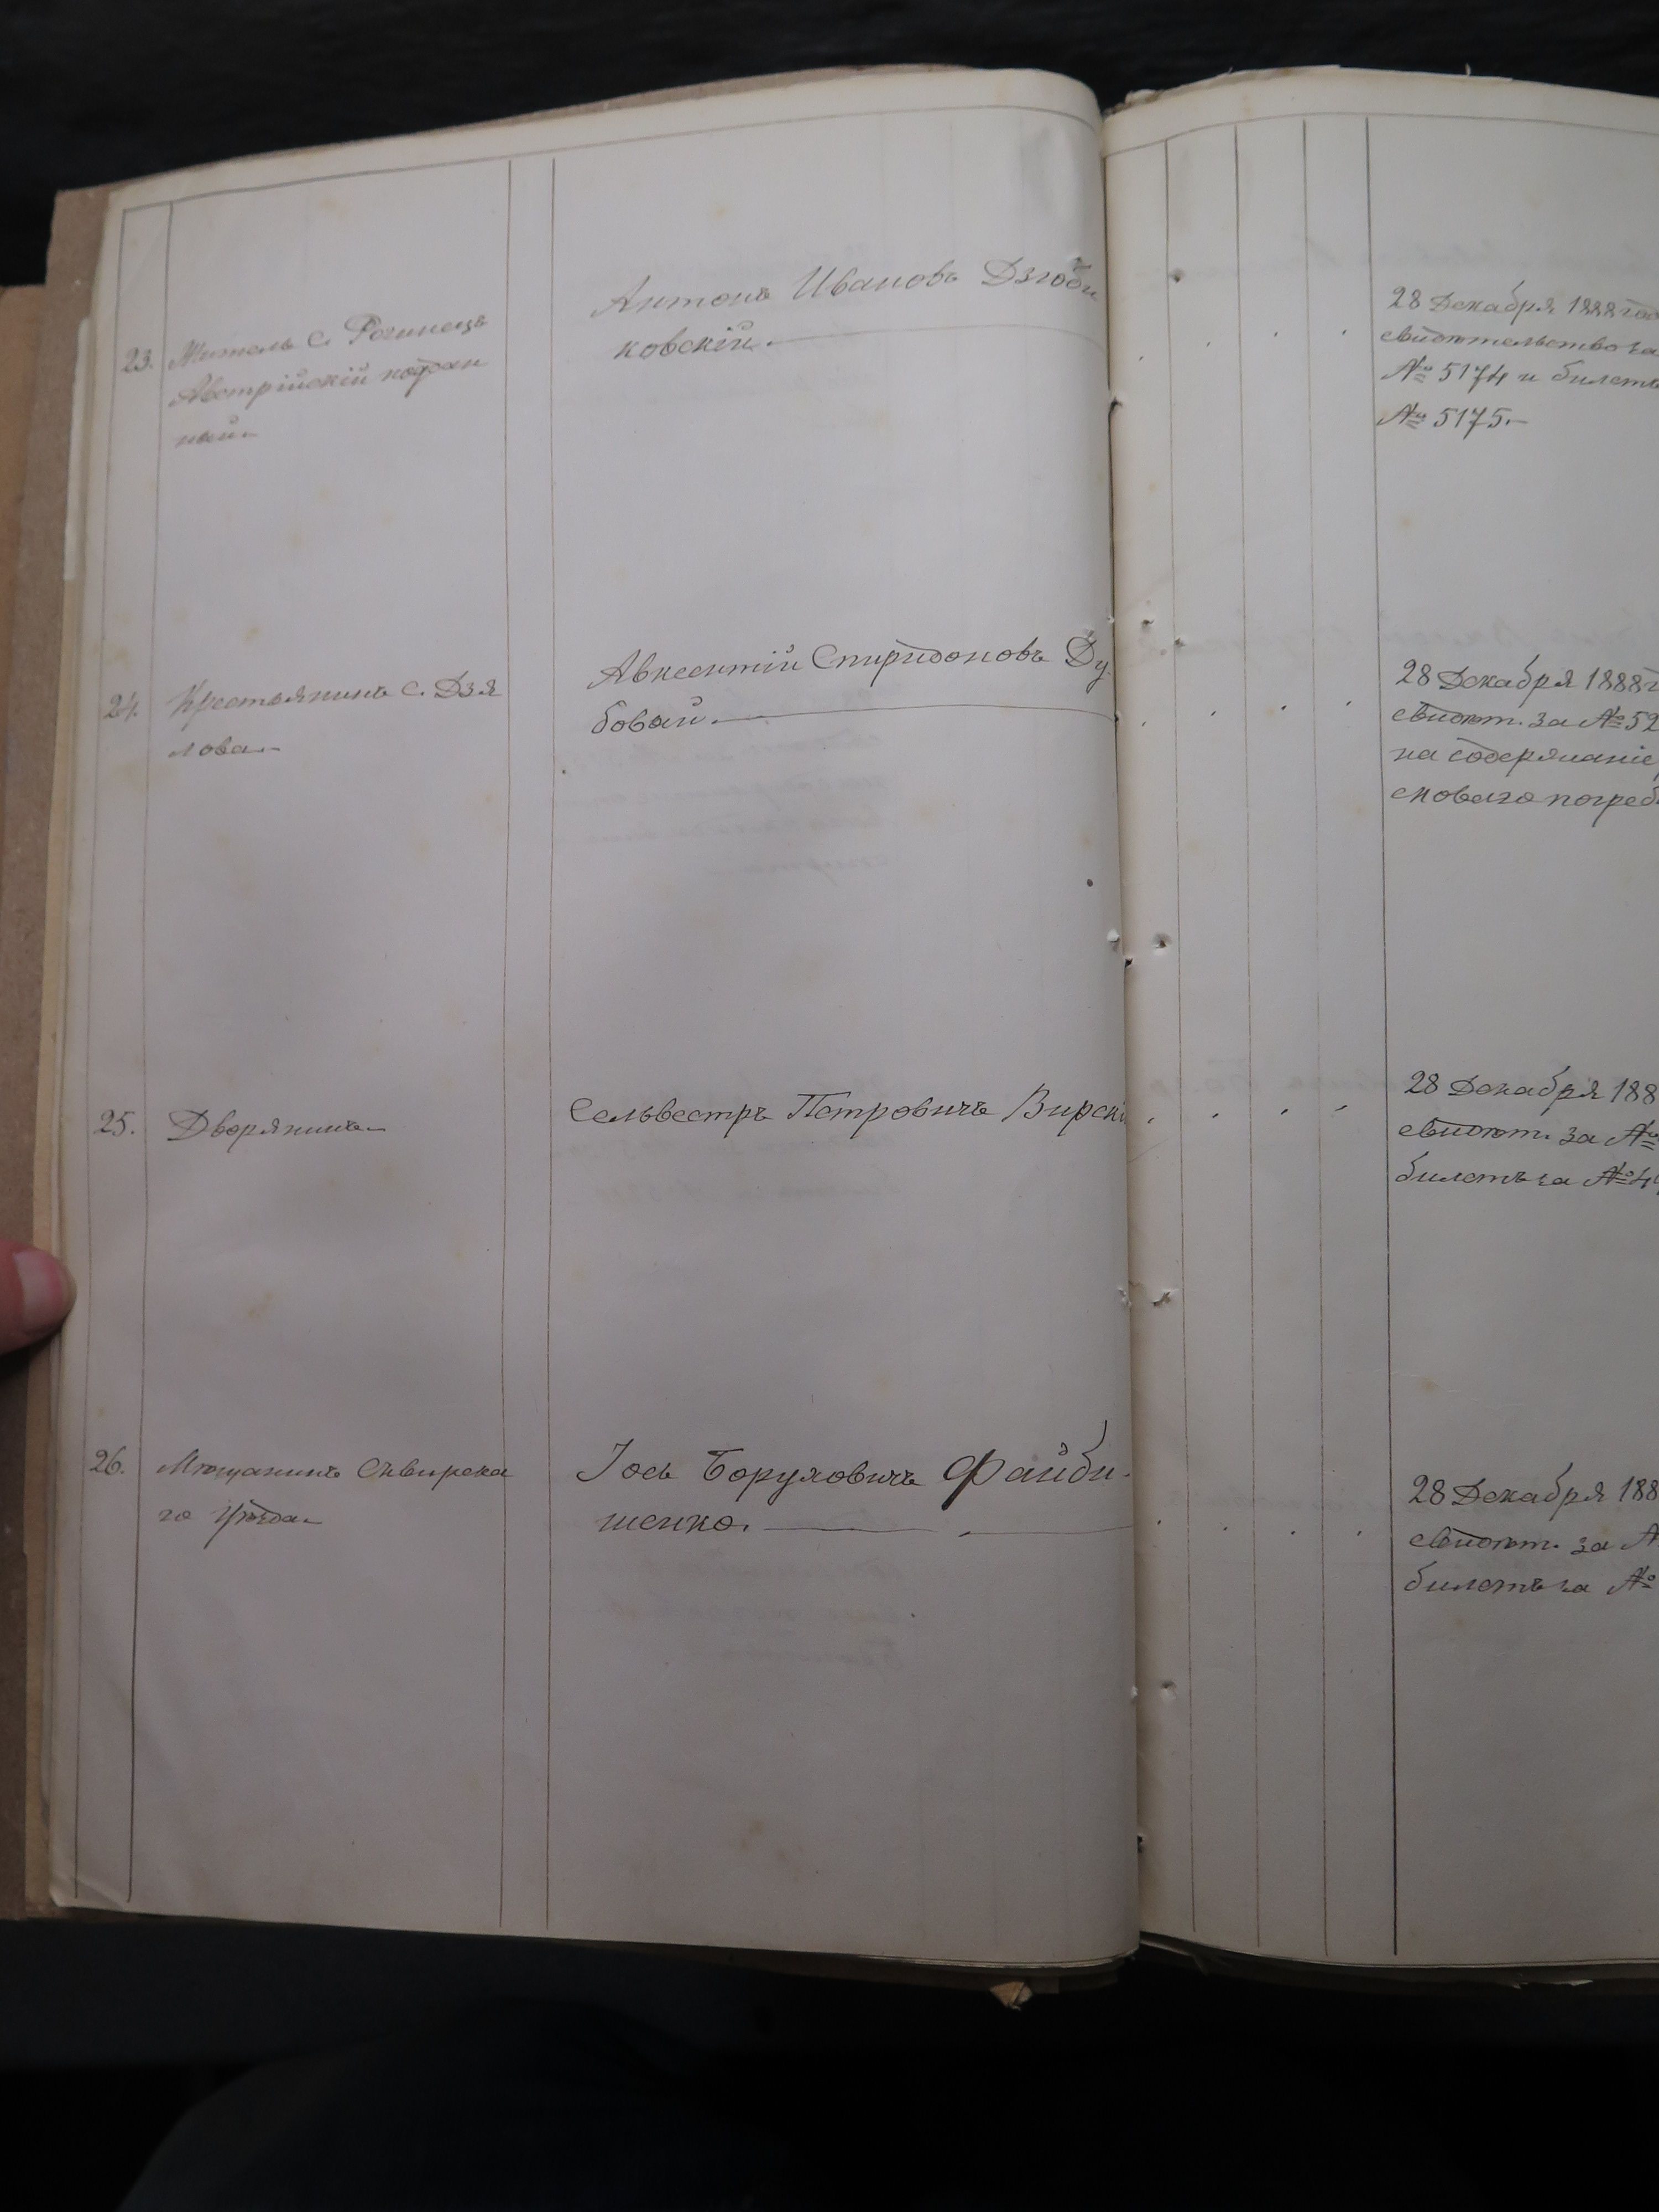 23. Житель с. Рогинецъ
Австрійскій поддан
ный.-
Антонъ Ивановъ Дзюби
ковскій.-
28 Декабря 1888 год
свидѣтельство за
№ 5174 и билетъ
№ 5175.-
24. Крестьянинъ с. Дзя
лова.-
Авксентій Спиридоновъ Ду-
бовай.-
28 Декабря 1888 г
свидѣт. за № 52
на содержаніе
сковаго погреб
25. Дворянинъ.-
Сельвестръ Петровичъ Вирскі
28 Декабря 188
свидѣт. за №
билетъ за № 4
26. Мѣщанинъ Сквирска
го уѣзда.-
Іось Боруховичъ Файби-
шенко.
28 Декабря 188
свидѣт. за №
билетъ за №